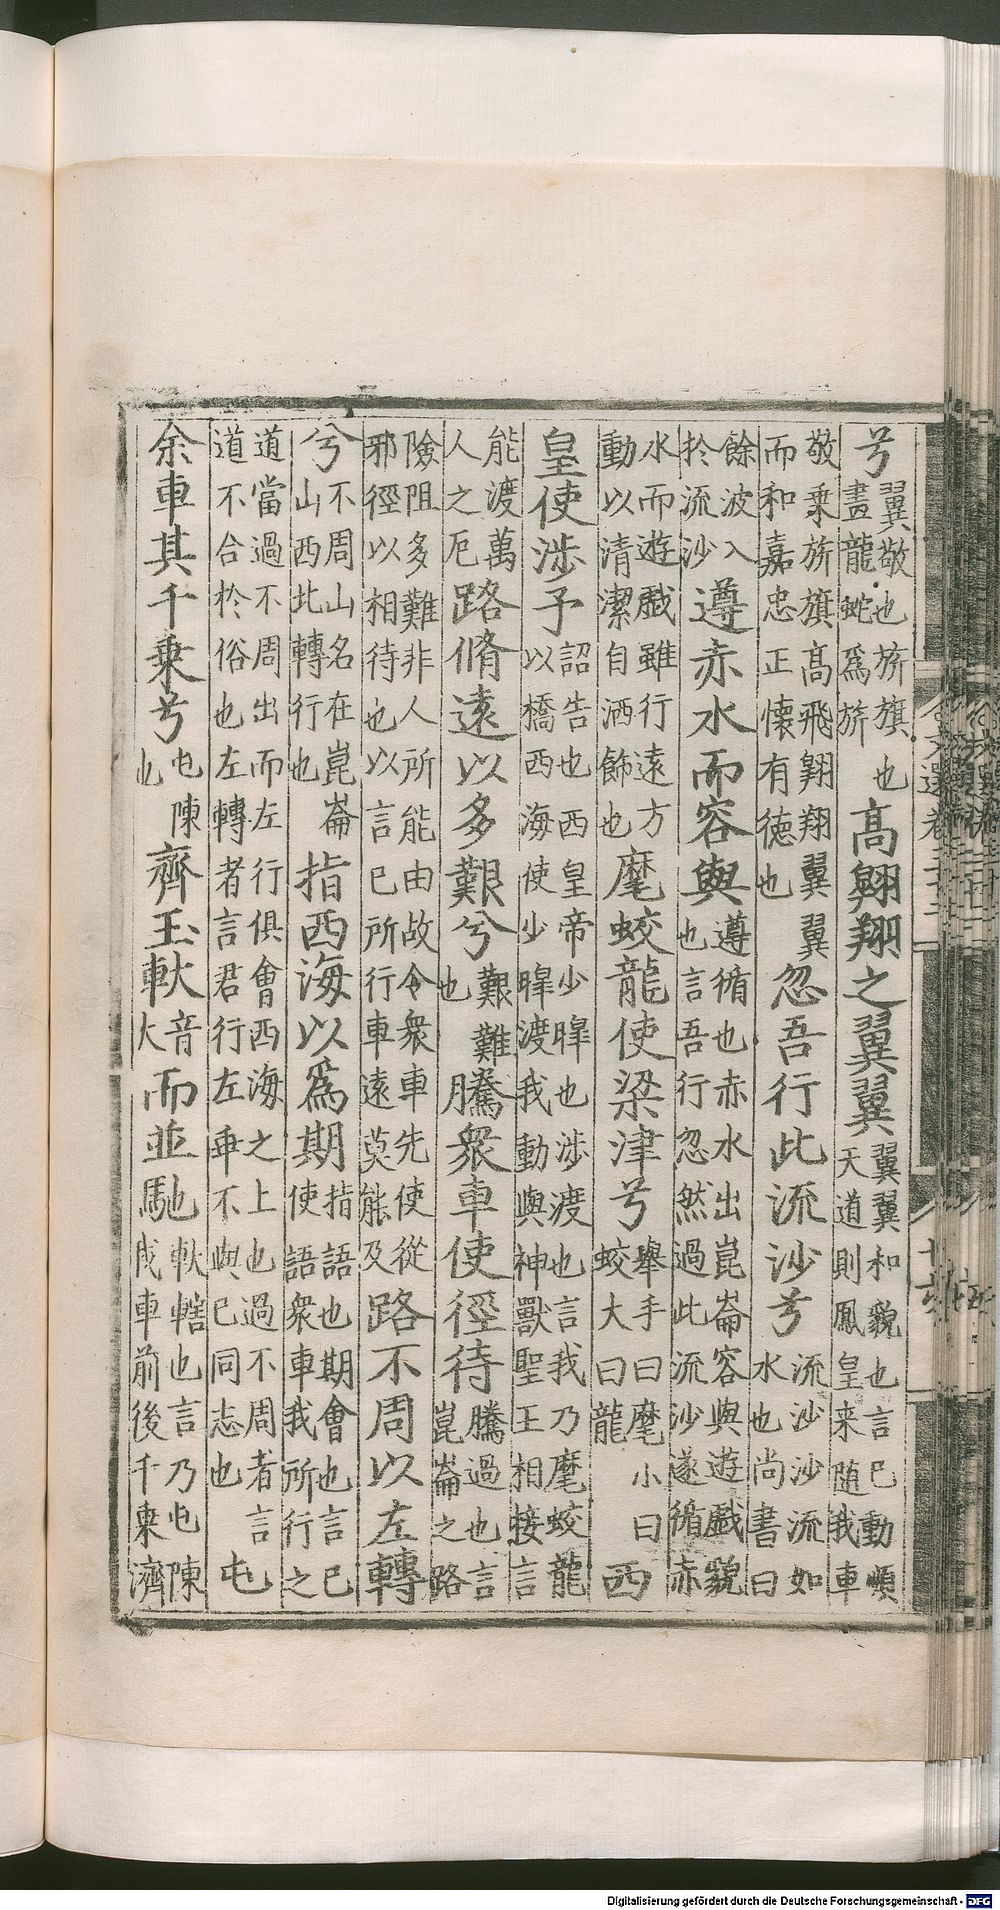 兮翼敬也旂旗也畫龍蛇爲旂高翺翔之翼翼翼翼和貌也言巳動順天道則鳳皇来随我車
敬乗旂旗高飛翺翔翼翼而和嘉忠正懷有德也忽吾行此流沙兮流沙沙流如水也尚書曰
餘波入於流沙遵赤水而容與遵循也赤水出崑崙容與遊戲貌也言吾行忽然過此流沙遂循赤
水而遊戲雖行遠方動以清潔自洒飾也麾蛟龍使梁津兮舉手曰麾小曰蛟大曰龍西
皇使涉予詔告也西皇帝少皞也涉渡也言我乃麾蛟龍以橋西海使少皞渡我動與神獸聖王相接言
能渡萬人之厄路脩遠以多艱兮艱難也騰衆車使徑待騰過也言崑崙之路
險阻多難非人所能由故令衆車先使從邪徑以相待也以言巳所行車遠莫能及路不周以左轉
兮不周山名在崑崙山西北轉行也指西海以爲期指語也期會也言巳使語衆車我所行之
道當過不周出而左行俱會西海之上也過不周者言道不合於俗也左轉者言君行左乖不與巳同志也屯
余車其千乗兮屯陳也齊玉軑音大而並馳也軑轄也言乃屯陳我車前後千乗濟
文選卷三十二
十六
Digitalisierung gefördert durch die Deutsche Forschungsgemeinschaft - DFG